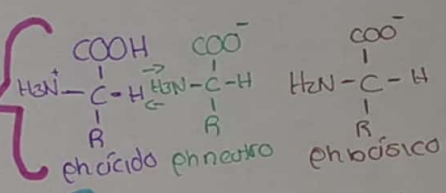 COOH
H3N⁺ – C – H
R
ph ácido
⇄
COO⁻
H3N – C – H
R
ph neutro
COO⁻
H2N – C – H
R
ph básico